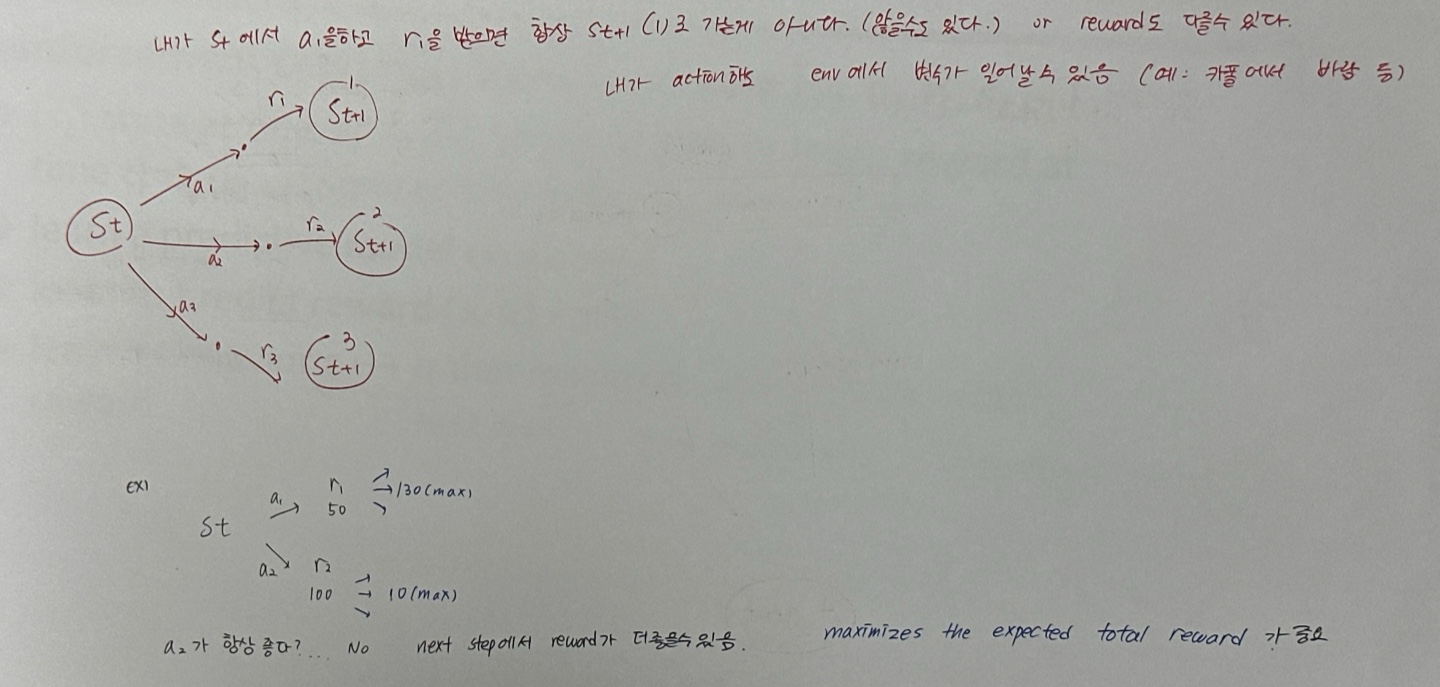 내가 St에서 a1을하고 r1을 받으면 항상 St+1 (1)로 가는게 아니다. (않을수도 있다.) or reward도 다를수 있다.
내가 action해도 env에서 변수가 일어날 수 있음 (예: 카폴에서 바람 등)
r1 1 St+1
a1
St a2 r2 2 St+1
a3
r3 3 St+1
EX)
a1 r1 →130(max)
St 50
a2 r2
100 → 10(max)
a2가 항상 좋다?... No next step에서 reward가 더좋을수있음. maximizes the expected total reward 가 중요